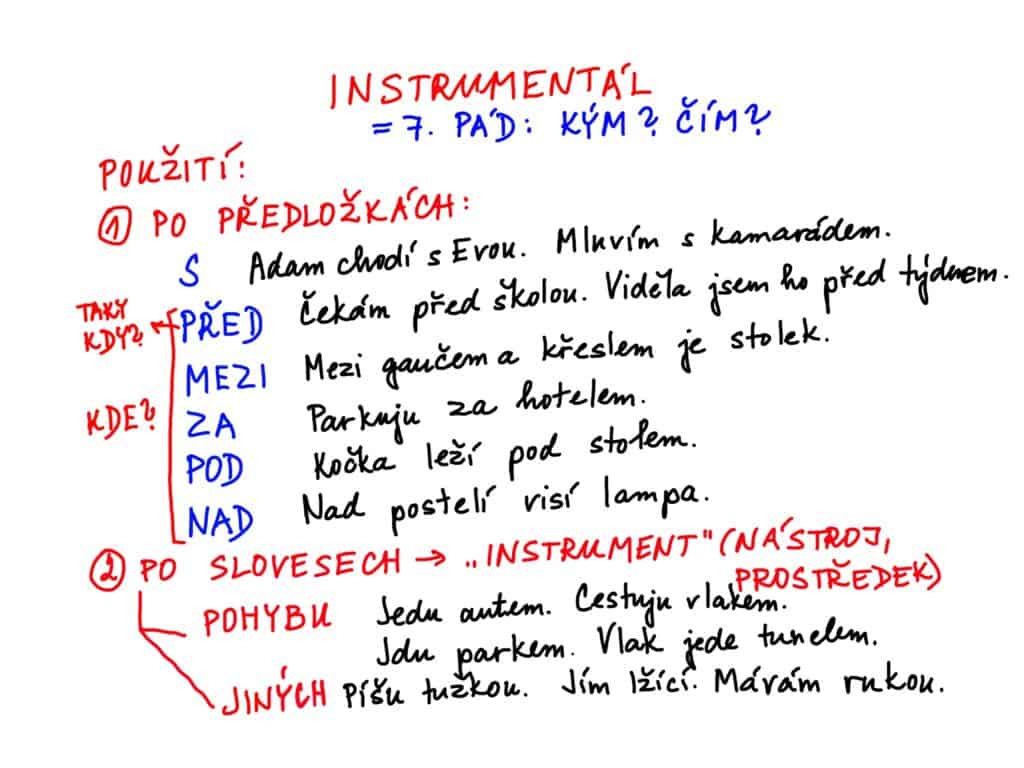 INSTRUMENTÁL
= 7. PÁD: KÝM? ČÍM?
POUŽITÍ:
① PO PŘEDLOŽKÁCH:
S Adam chodí s Evou. Mluvím s kamarádem.
TAKY KDY? PŘED Čekám před školou. Viděla jsem ho před týdnem.
MEZI Mezi gaučem a křeslem je stolek.
KDE? ZA Parkuju za hotelem.
POD Kočka leží pod stolem.
NAD Nad postelí visí lampa.
② PO SLOVESECH → „INSTRUMENT" (NÁSTROJ,
PROSTŘEDEK)
POHYBU Jedu autem. Cestuju vlakem.
Jdu parkem. Vlak jede tunelem.
JINÝCH Píšu tužkou. Jím lžící. Mávám rukou.